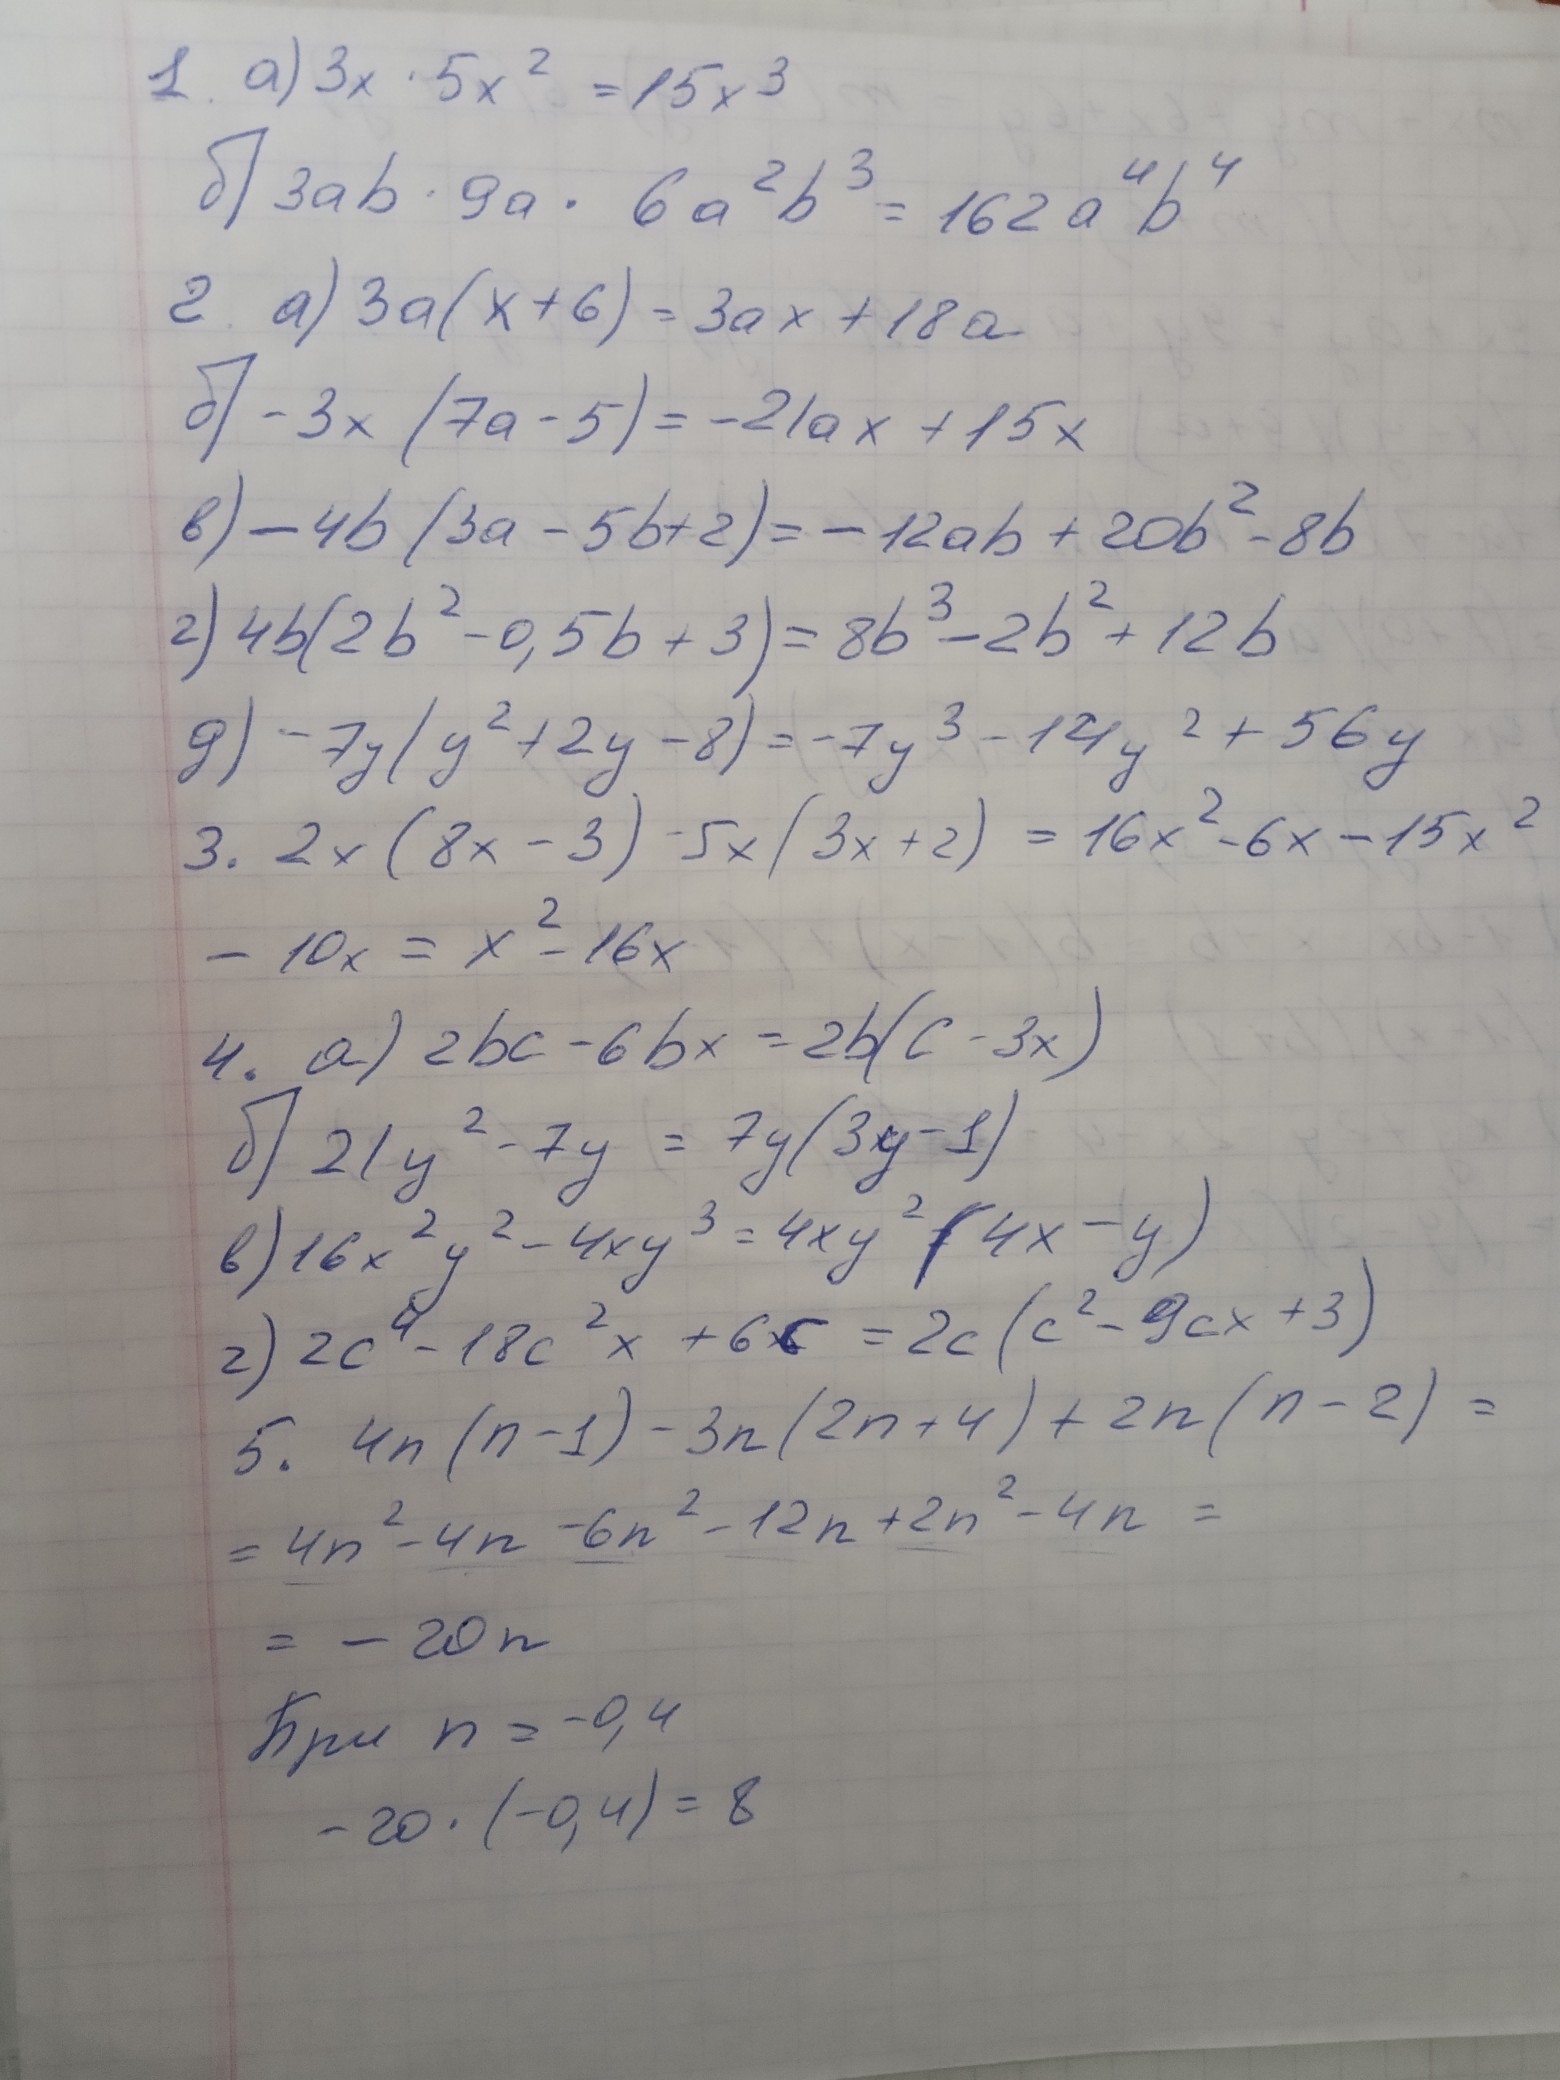 1. а) 3x · 5x² = 15x³
б) 3ab · 9a · 6a²b³ = 162a⁴b⁴
2. а) 3a(x+6) = 3ax + 18a
б) -3x (7a - 5) = -21ax + 15x
в) -4b (3a - 5b + 2) = -12ab + 20b² - 8b
г) 4b(2b² - 0,5b + 3) = 8b³ - 2b² + 12b
д) -7y(y² + 2y - 8) = -7y³ - 14y² + 56y
3. 2x (8x - 3) - 5x (3x + 2) = 16x² - 6x - 15x²
- 10x = x² - 16x
4. а) 2bc - 6bx = 2b(c - 3x)
б) 21y² - 7y = 7y(3y - 1)
в) 16x²y² - 4xy³ = 4xy² (4x - y)
г) 2c⁴ - 18c²x + 6c = 2c (c² - 9cx + 3)
5. 4n (n - 1) - 3n (2n + 4) + 2n (n - 2) =
= 4n² - 4n - 6n² - 12n + 2n² - 4n =
= - 20n
При n = -0,4
-20 · (-0,4) = 8